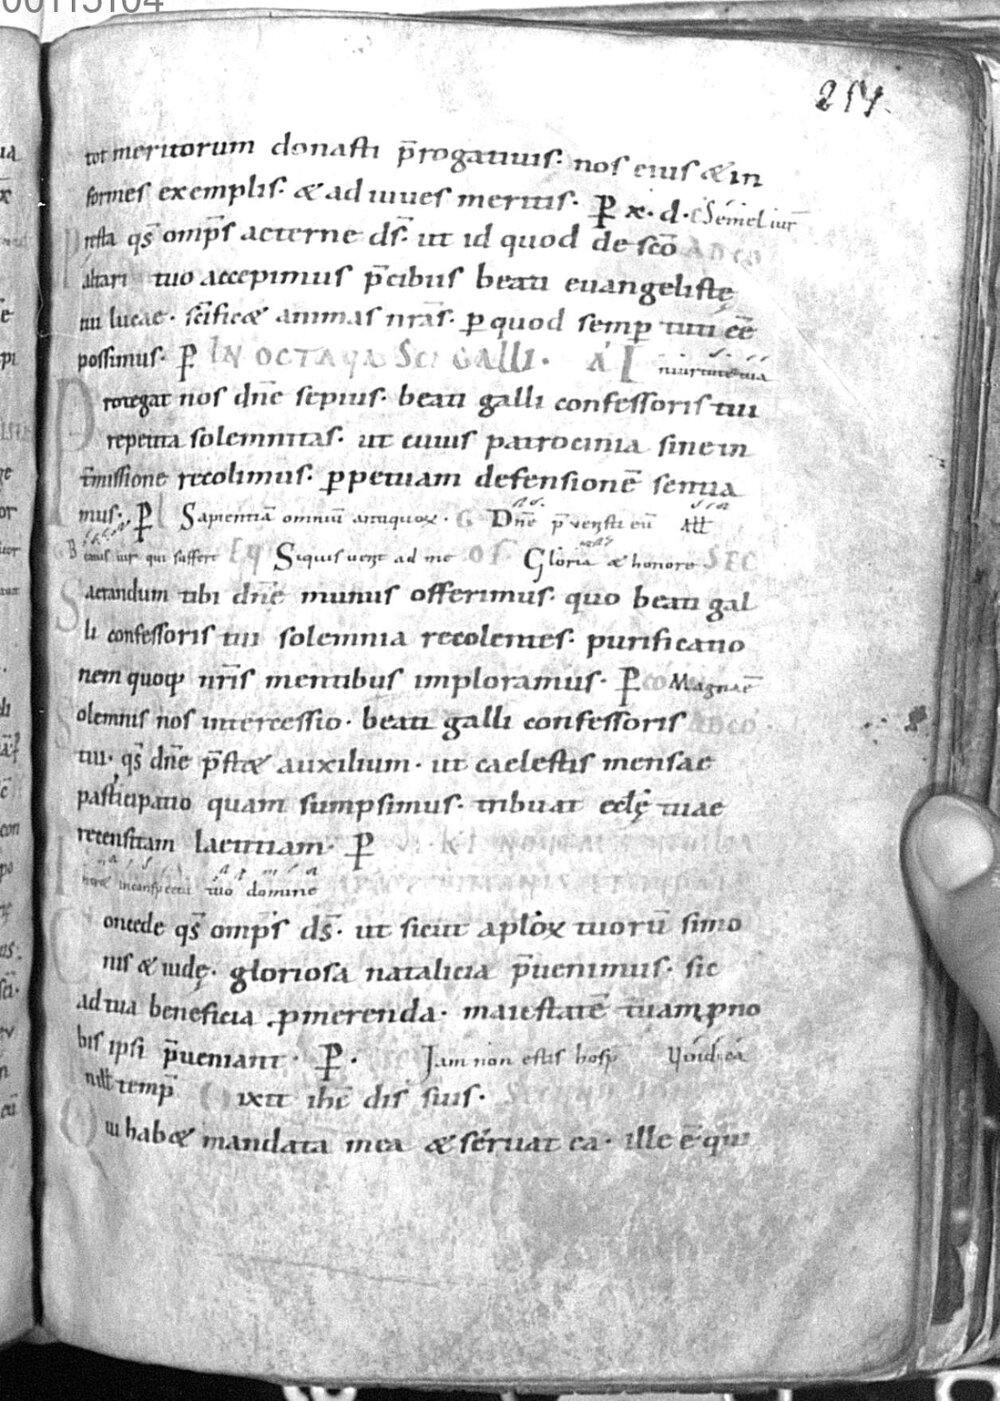 00115104
257.
tot meritorum donasti p̄rogatiuis· nos eius & in
formes exemplis· & adiuues meritis· P̲ x· d· Semel iur̄
Presta qs̄ omp̄s aeterne ds̄· ut id quod de sc̄o AD CO
altari tuo accepimus p̄cibus beati euangelistę
tui lucae· sc̄ific& animas nr̄as· p̲ quod semp̲ tuti ee̅
possimus· P̲ IN OCTAVA SCI GALLI· A I
Protegat nos dn̄e sepius· beati galli confessoris tui
repetita solemnitas· ut cuius patrocinia sine in
t̄missione recolimus· p̲petuam defensionē sentia
mus· P̲ L Sapientiā omniū antiquoꝝ· G Dn̄e p̄uenisti eū All
Beatus uir qui suffert EQ Siquis uenit ad me OF Gloria & honore SEC
Sacrandum tibi dn̄e munus offerimus· quo beati gal
li confessoris tui solemnia recolentes· purificatio
nem quoq̨ nr̄is mentibus imploramus· P̲ CO Magnae̅
Solemnis nos intercessio· beati galli confessoris AD CO·
tui· qs̄ dn̄e p̄st& auxilium· ut caelestis mensae
participatio quam sumpsimus· tribuat eclę tuae
recensitam laetitiam· P̲
in conspectu tuo domine
Concede qs̄ omp̄s ds̄· ut sicut aploꝝ tuorū simo
nis & iudę· gloriosa natalicia p̄uenimus· sic
ad tua beneficia p̲merenda· maiestatē tuam p̲ no
bis ipsi p̄ueniant· P̲· Jam non estis hosp̄
nill temp̄ Dixit ihc̄ dis̄ suis·
Qui hab& mandata mea & seruat ea· ille ē qui